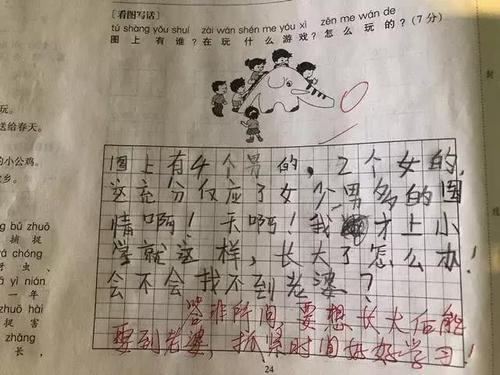 [看图写话]
tú shàng yǒu shuí zài wán shén me yóu xì zěn me wán de
图 上 有 谁？在 玩 什 么 游 戏？怎 么 玩 的？(7 分)
图上有4个男的，2个女的，
这充分仅应了女少男多的国
情啊！天啊！我才上小
学就这样，长大了怎么办！
会不会找不到老婆？
答非所问 要想长大后能
娶到老婆，抓紧时间好好学习！
24
玩。
送给春天。
的小公鸡。
乡。
bǔ zhuō
捕 捉
chóng
虫、
yì nián
一 年
zhuō hài
捉 害
zhǎng
长，